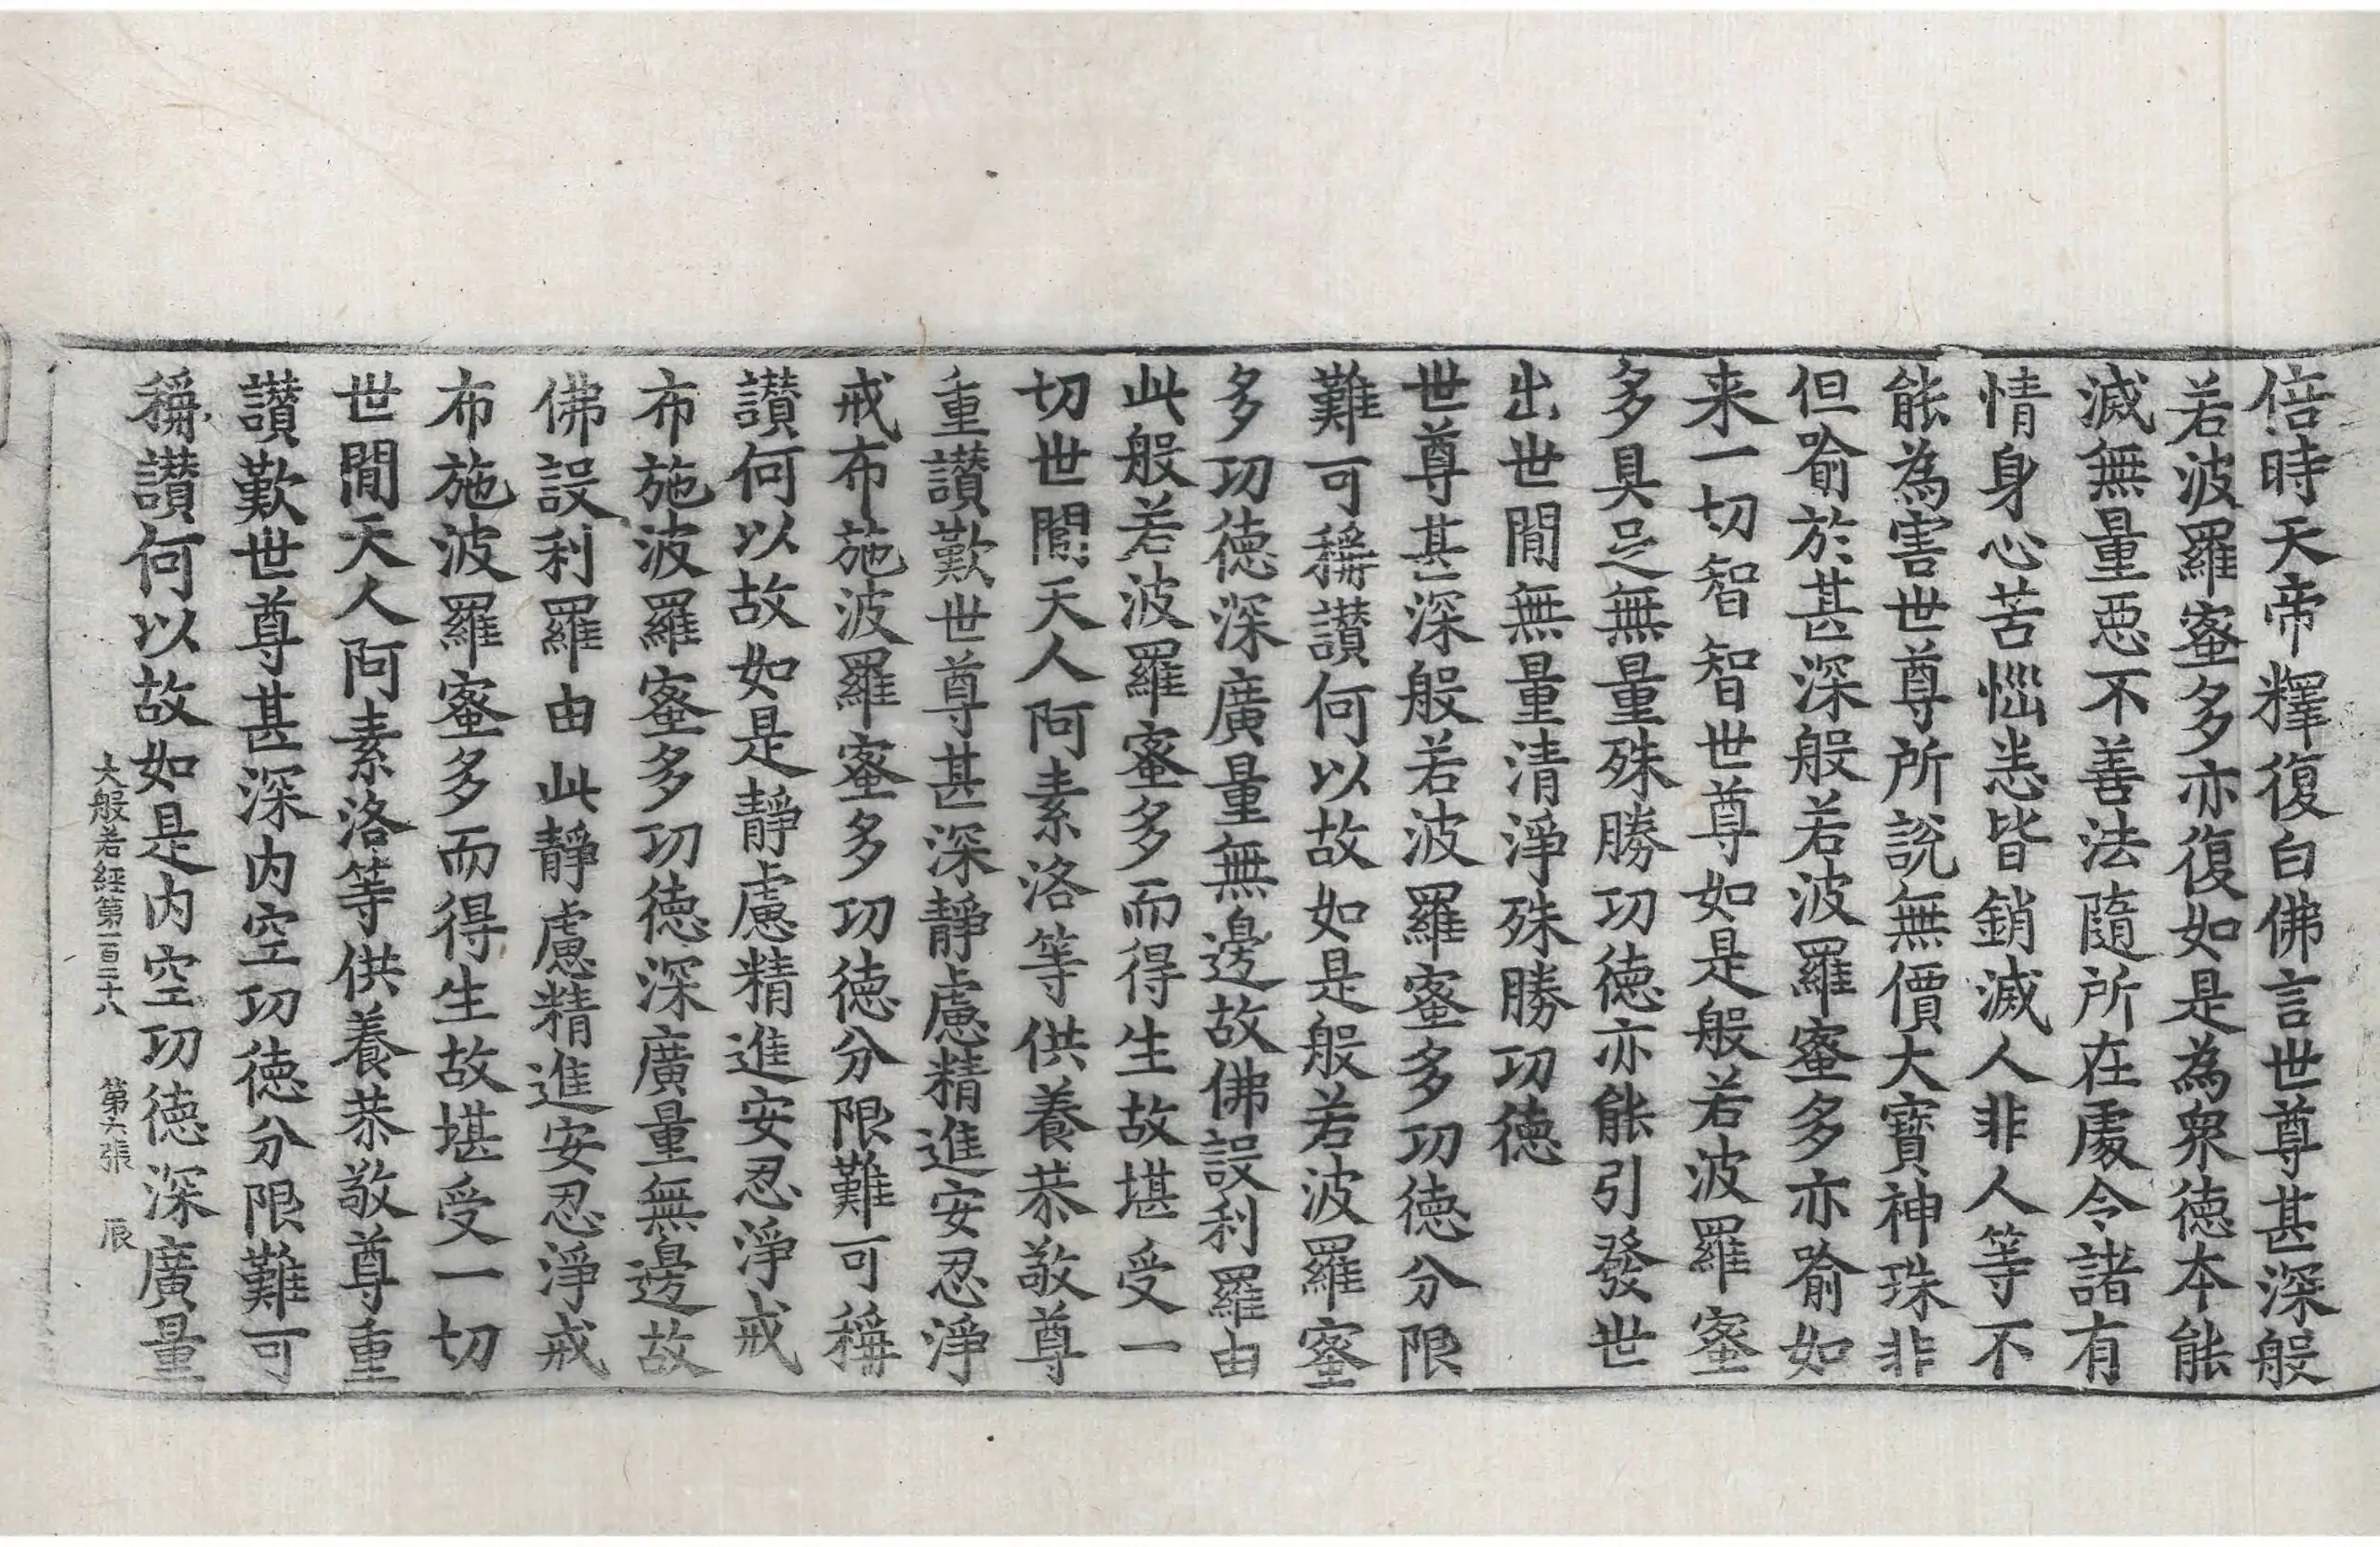 倍時天帝釋復白佛言世尊甚深般
若波羅蜜多亦復如是為衆德本能
滅無量惡不善法隨所在處令諸有
情身心苦惱悉皆銷滅人非人等不
能為害世尊所說無價大寶神珠非
但喻於甚深般若波羅蜜多亦喻如
来一切智智世尊如是般若波羅蜜
多具足無量殊勝功德亦能引發世
出世間無量清淨殊勝功德
世尊甚深般若波羅蜜多功德分限
難可稱讃何以故如是般若波羅蜜
多功德深廣量無邊故佛設利羅由
此般若波羅蜜多而得生故堪受一
切世間天人阿素洛等供養恭敬尊
重讃歎世尊甚深靜慮精進安忍淨
戒布施波羅蜜多功德分限難可稱
讃何以故如是靜慮精進安忍淨戒
布施波羅蜜多功德深廣量無邊故
佛設利羅由此靜慮精進安忍淨戒
布施波羅蜜多而得生故堪受一切
世間天人阿素洛等供養恭敬尊重
讃歎世尊甚深內空功德分限難可
稱讃何以故如是內空功德深廣量
大般若經第一百二十八 第六張 辰